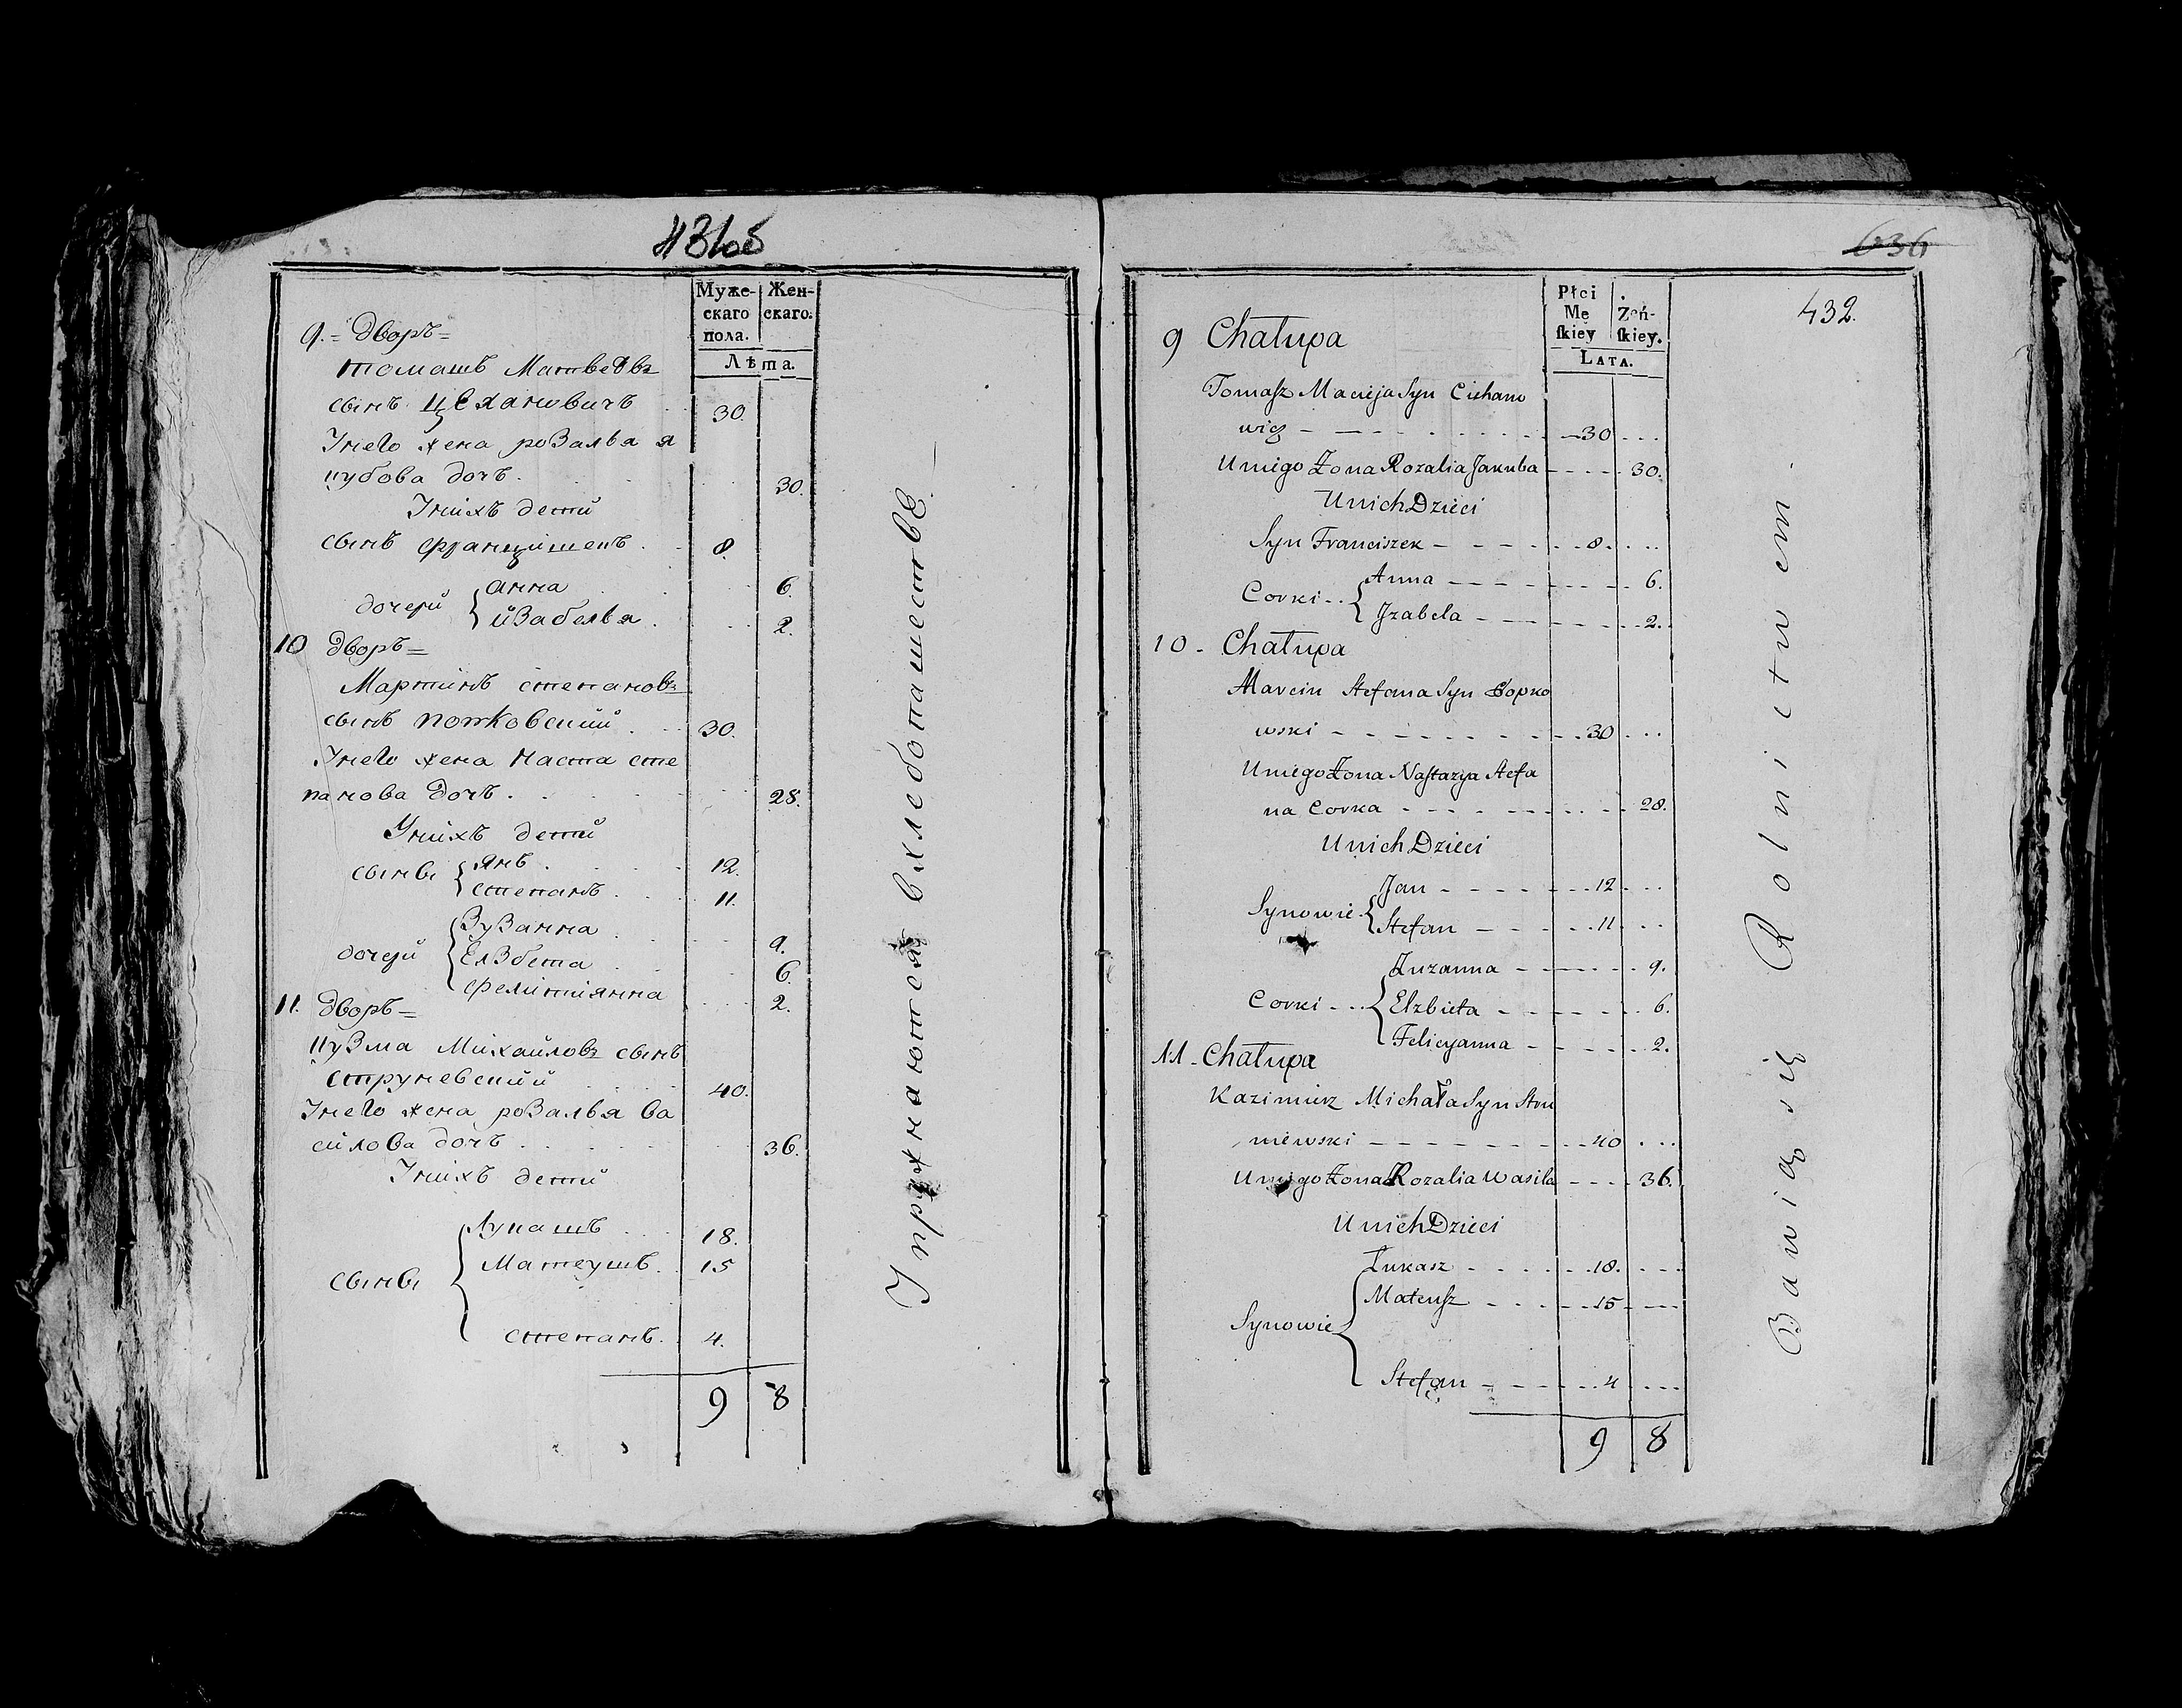 431об
Муже-
скаго
пола.
Жен-
скаго.
Лѣта.
9.= Дворъ=
томашъ Матвеевъ
сынъ Цехановичъ 30.
Унего жена розалья я
кубова дочъ. 30.
Унихъ дети
сынъ францишекъ. 8.
дочери
анна 6.
изабелья. 2.
10 Дворъ=
Мартинъ степановъ
сынъ 30.
Унего жена наста сте
панова дочъ. 28.
Унихъ дети
сыны
янъ. 12.
степанъ. 11.
дочери
Зузанна 9.
Елзбета 6.
фелициянна 2.
11. Дворъ=
кузма Михайловъ сынъ
струневский 40.
Унего жена розалья ва
силова дочъ 36.
Унихъ дети
сыны
лукашъ 18.
Матеушъ. 15
степанъ. 4.
9 8
Упражняются вхлебопашестве.
636
432.
Płci
Mę
skiey
Żeń-
skiey.
LATA.
9 Chałupa
Tomasz Macieja Syn Ciehano
wicz 30
Uniego Żona Rozalia Jakuba 30.
Unich Dzieci
Syn Franciszek 8.
Corki
Anna 6.
Izabela 2.
10 - Chałupa
Marcin Stefana Syn Sopko
wski 30
Uniego Żona Nastazya Stefa
na Corka 28.
Unich Dzieci
Synowie
Jan 12
Stefan 11
Corki
Zuzanna 9.
Elzbieta 6.
Felicyanna 2.
11 - Chałupa
Kazimierz Michała Syn Stru
niewski 40
Uniego Żona Rozalia Wasila 36.
Unich Dzieci
Synowie
Łukasz 18.
Mateusz 15
Stefan 4
9 8
Bawią się Rolnictwem